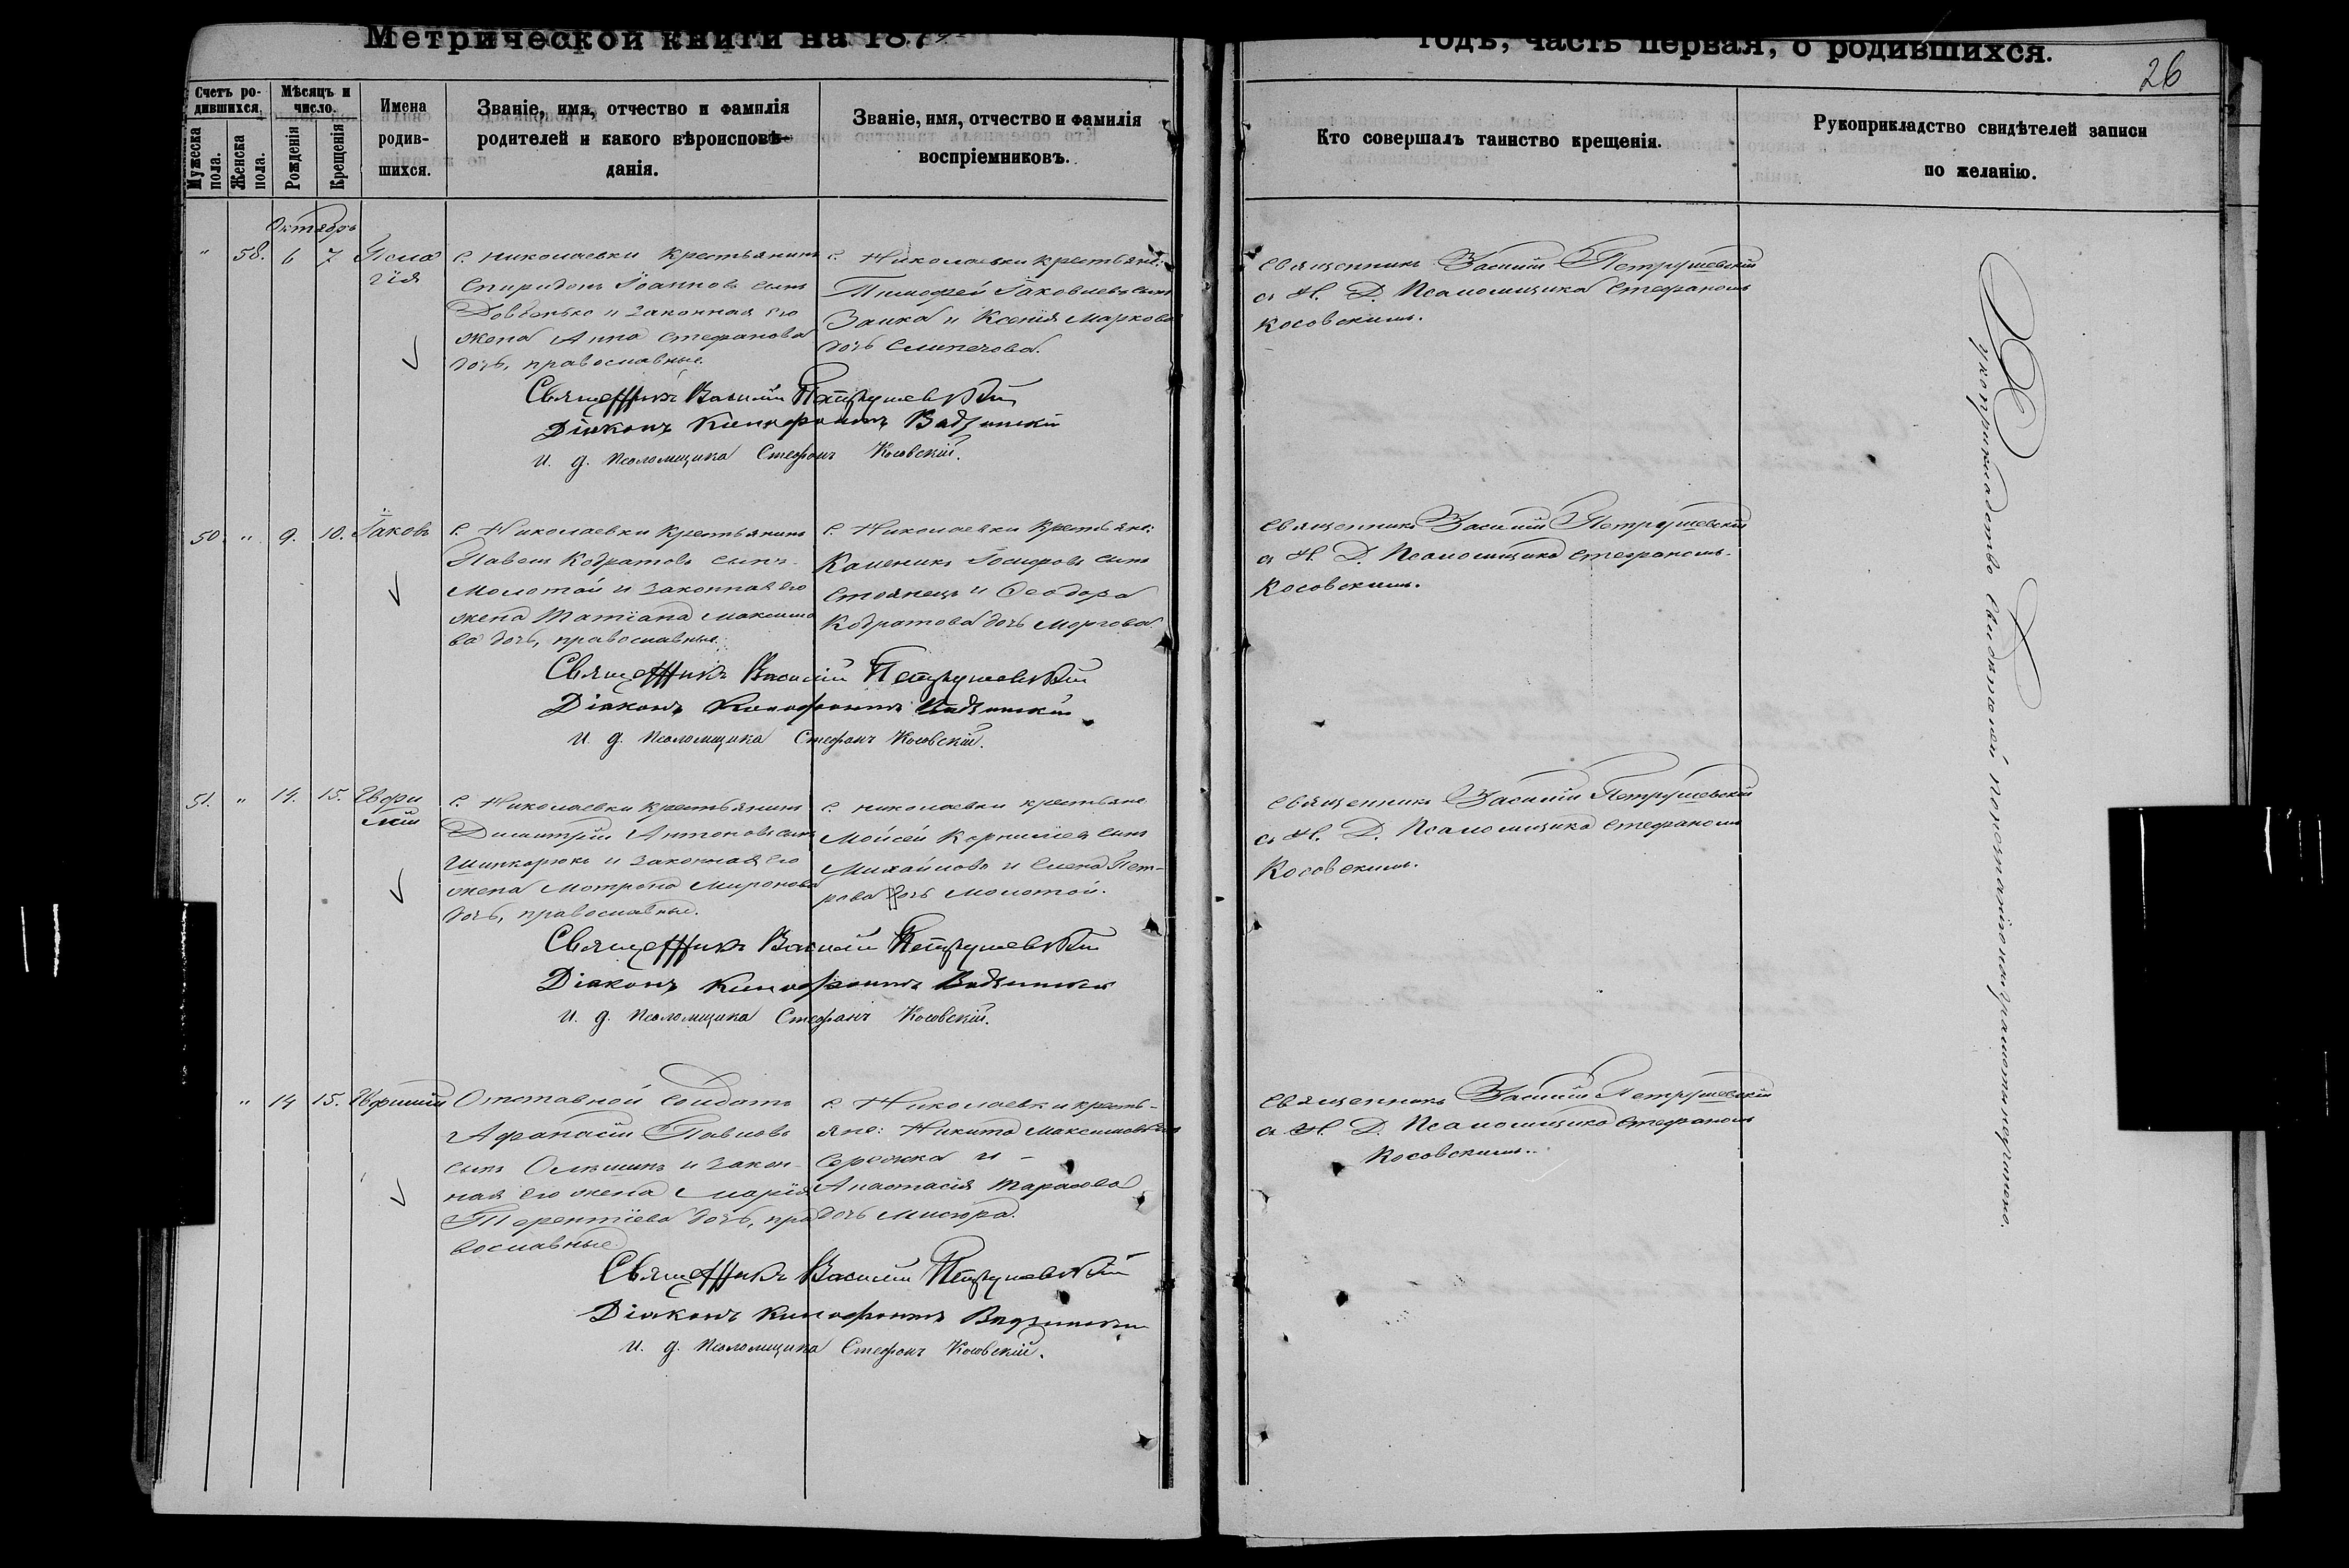 Метрической книги на 187
годъ, часть первая, о родившихся.
26
Счетъ ро-
дившихся.
Мужеска
пола.
Женска
пола.
Мѣсяцъ и
число.
Рожденія
Крещенія
Имена
родив-
шихся.
Званіе, имя, отчество и фамилія
родителей и какого вѣроисповѣ-
данія.
Званіе, имя, отчество и фамилія
воспріемниковъ.
Кто совершалъ таинство крещенія.
Рукоприкладство свидѣтелей записи
по желанію.
Октябрь
" 58. 6 7 Пела
гія
с. Николаевки крестьянинъ
Спиридонъ Іоанновъ сынъ
Довбенько и законная его
жена Анна Стефанова
дочь, православные.
с. Николаевки крестьяне:
Тимофей Іаковлевъ сынъ
Заика и Ксенія Маркова
дочь
Священникъ Василій Петрушевскій
съ И. Д. Псаломщика Стефаномъ
Косовскимъ.
Священникъ Василій Петрушевскій
Діаконъ Ксенофонтъ
И. д. Псаломщика Стефанъ Косовскій.
50. " 9. 10. Іаковъ
с. Николаевки крестьянинъ
Павелъ Кодратовъ сынъ
Молотай и законная его
жена Татіана Максимо
ва дочь, православные.
с. Николаевки крестьяне:
сынъ
Стоянецъ и Феодора
Кодратова дочь
Священникъ Василій Петрушевскій
съ И. Д. Псаломщика Стефаномъ
Косовскимъ.
Священникъ Василій Петрушевскій
Діаконъ Ксенофонтъ
И. д. Псаломщика Стефанъ Косовскій.
51. " 14. 15. Евфи
мій
с. Николаевки крестьянинъ
Димитрій Антоновъ сынъ
Шинкарюкъ и законная его
жена Мотрона Миронова
дочь, православные.
с. Николаевки крестьяне
Мойсей Корниліевъ сынъ
Михайловъ и Елена Пет-
рова дочь Молотай.
Священникъ Василій Петрушевскій
съ И. Д. Псаломщика Стефаномъ
Косовскимъ.
Священникъ Василій Петрушевскій
Діаконъ Ксенофонтъ
И. д. Псаломщика Стефанъ Косовскій.
" 14 15. Евфимій
Отставной солдатъ
Афанасій Павловъ
сынъ и закон-
ная его жена Марія
Терентіева дочь, пра
вославные.
с. Николаевки кресть-
яне: Никита Максимовъ
и -
Анастасія Тарасова
дочь Мисюра.
Священникъ Василій Петрушевскій
съ И. Д. Псаломщика Стефаномъ
Косовскимъ.
Священникъ Василій Петрушевскій
Діаконъ Ксенофонтъ
И. д. Псаломщика Стефанъ Косовскій.